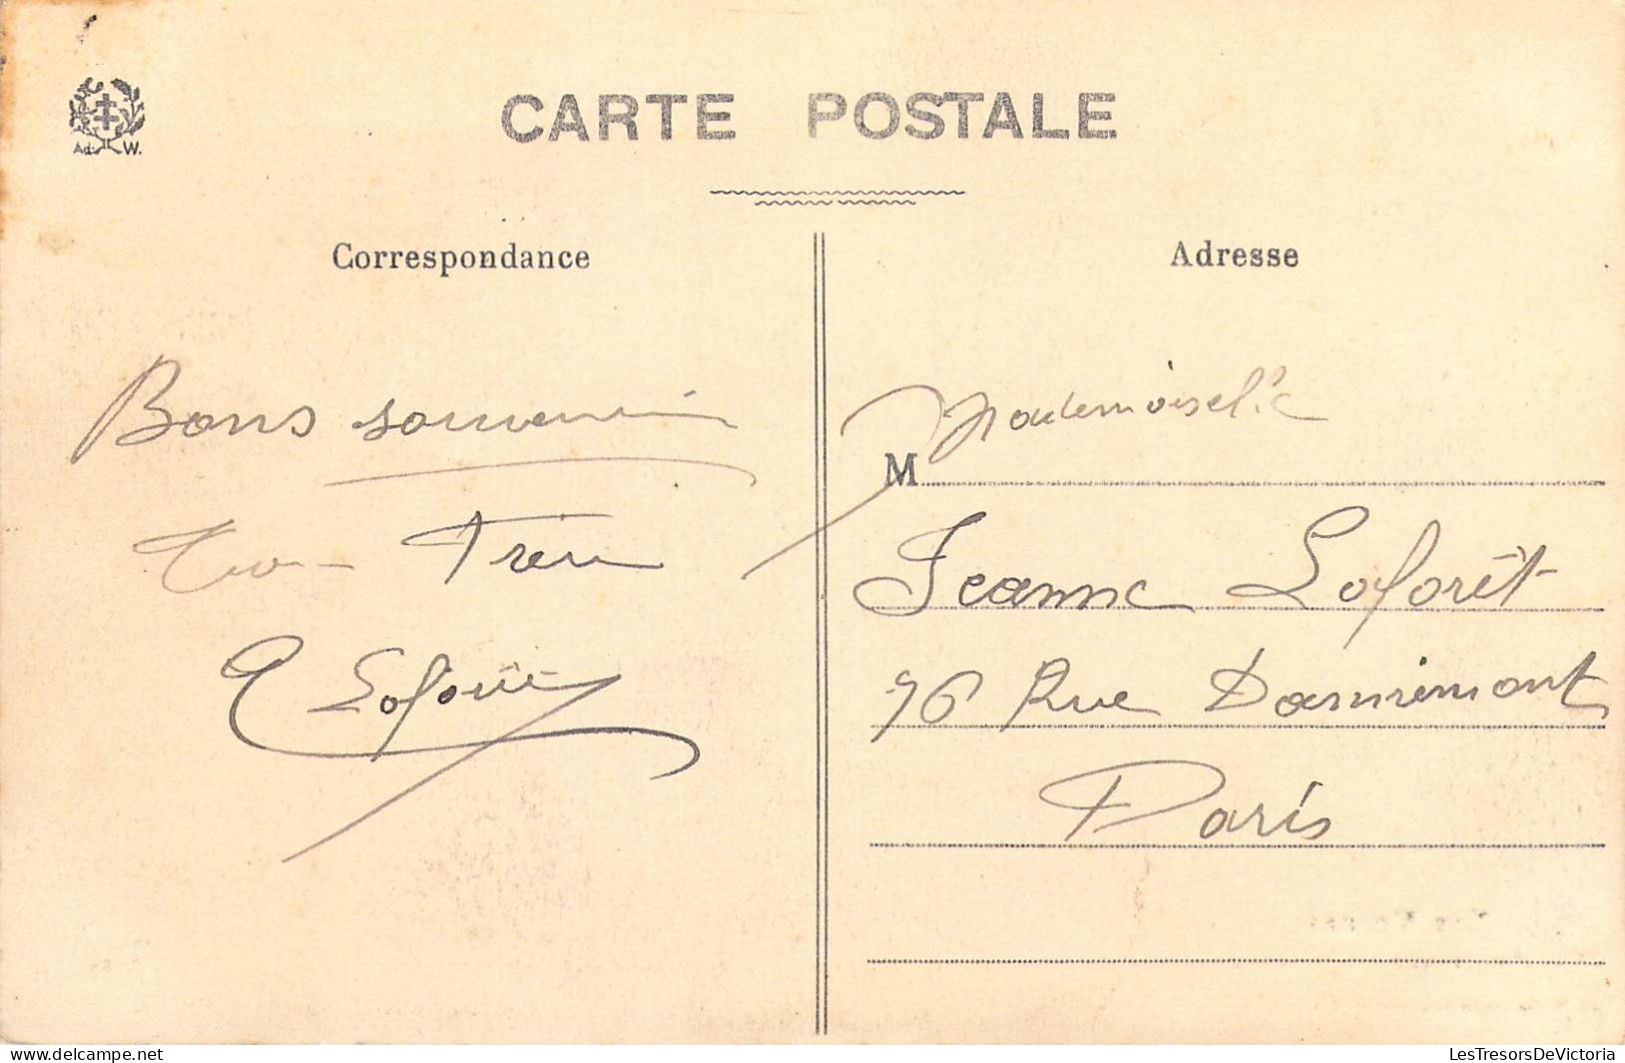 Ad. W.
CARTE POSTALE
Correspondance
Adresse
Bons souvenir
Ton Frère
Laforêt
Mademoiselle
M
Jeanne Laforêt
76 Rue Damrémont
Paris
LesTresorsDeVictoria
www.delcampe.net